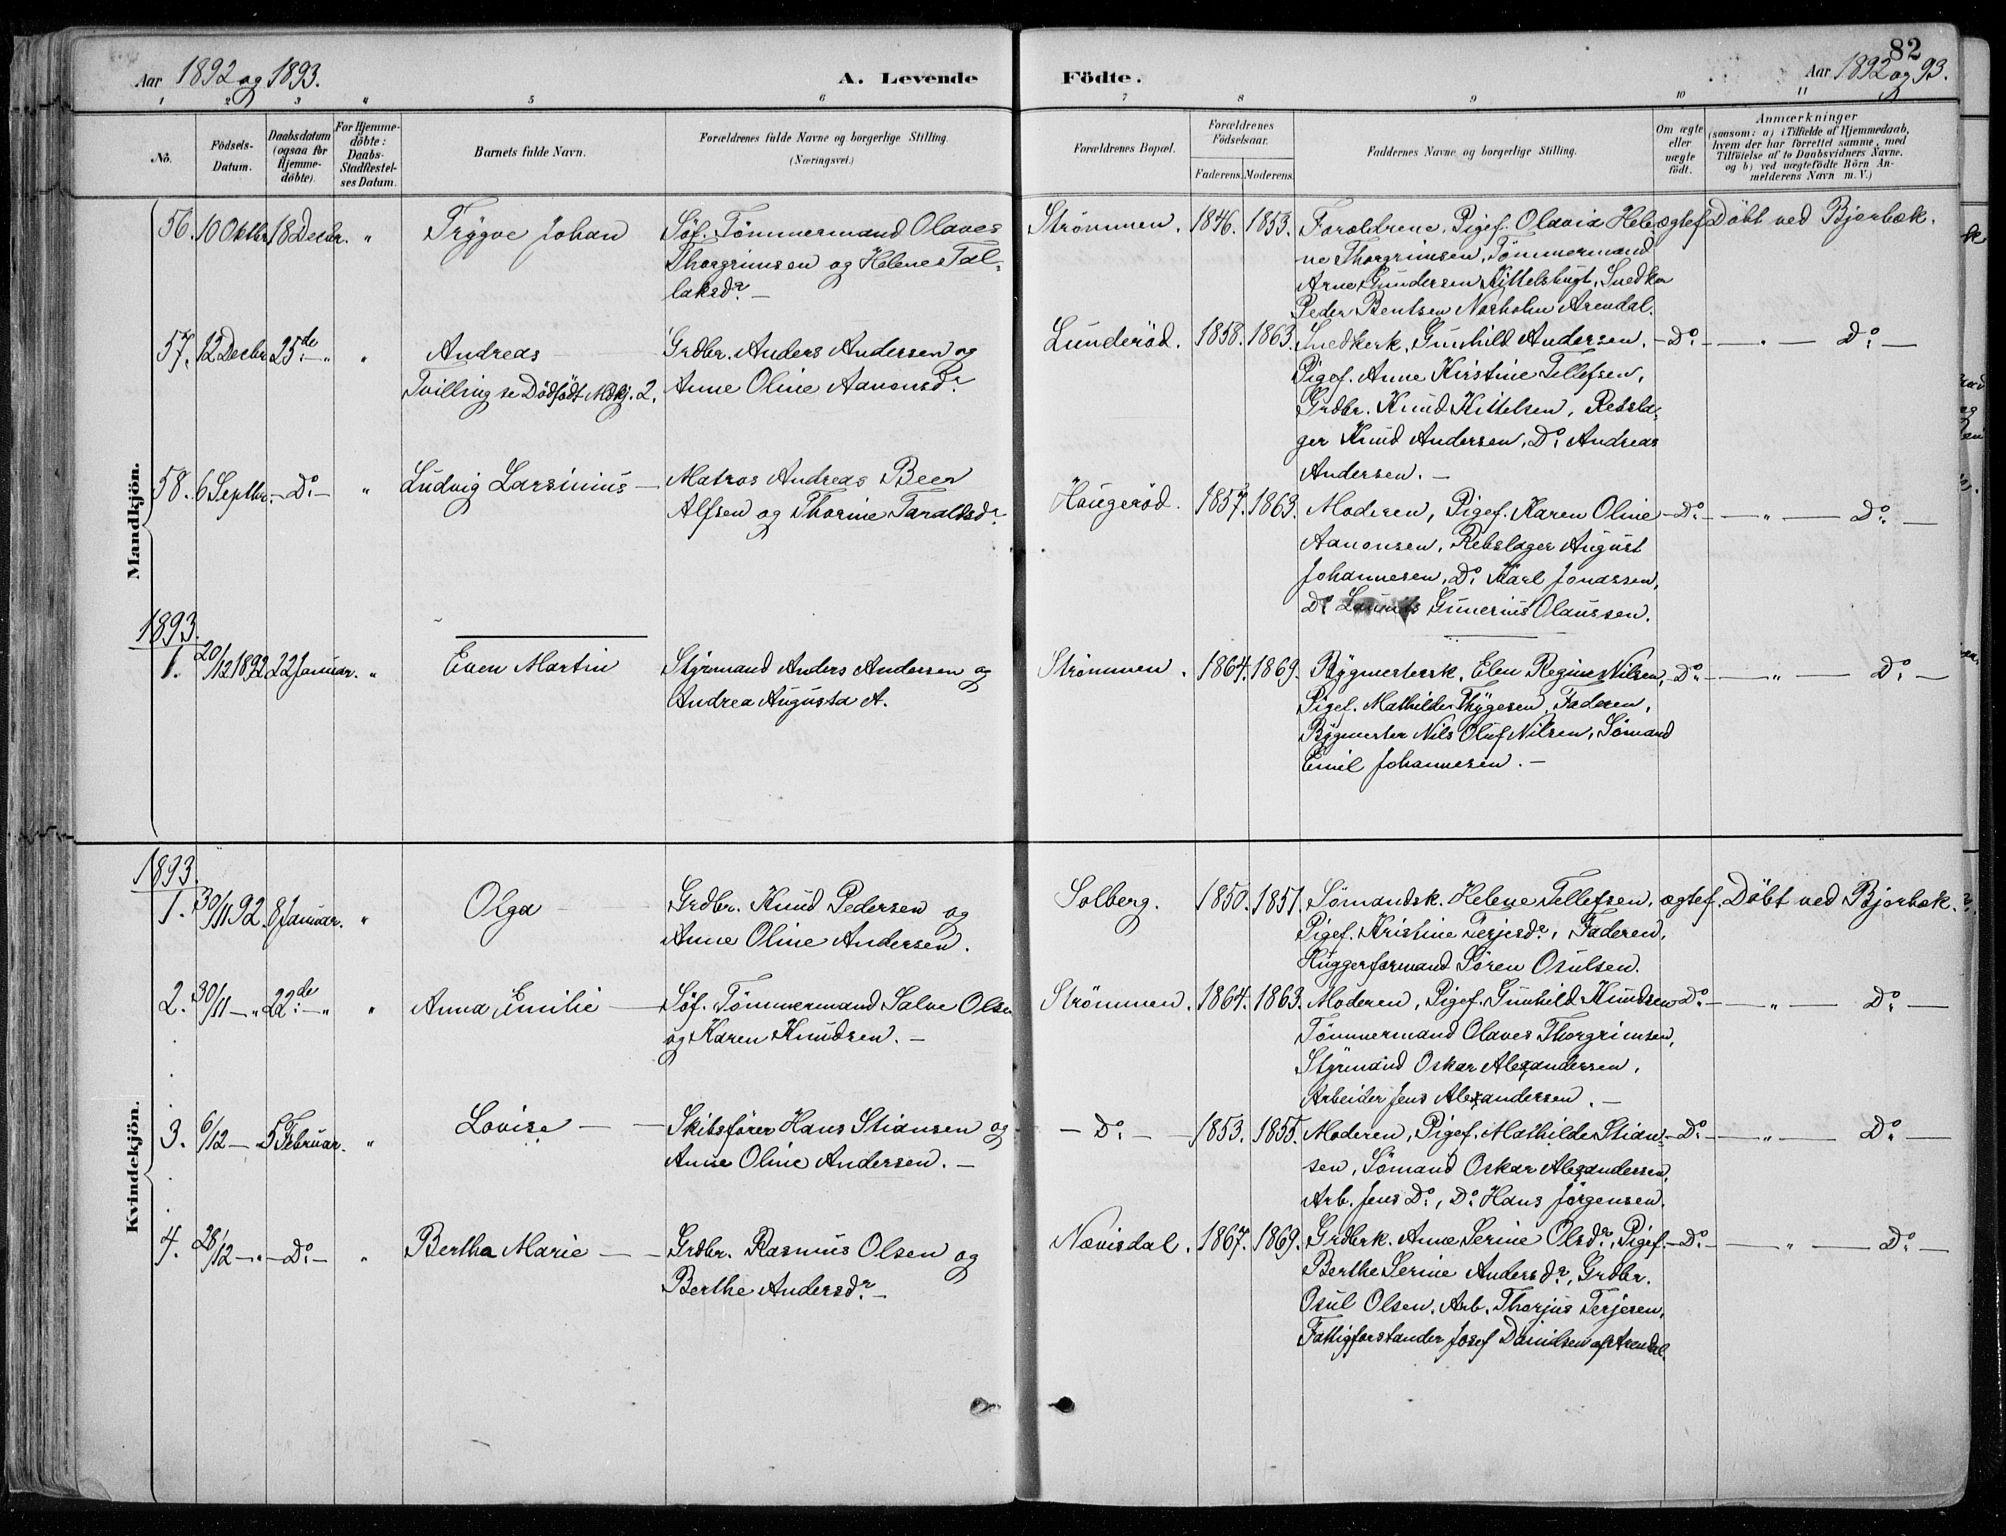 82
Aar 1892 og 1893.
A. Levende
Födte.
Aar 1892 og 93.
1 2 3 " 5 6 7 8 9 10 11
No.
Födsels-
Datum.
Daabsdatum
(ogsaa for
Hjemme-
döbte).
For Hjemme-
döbte:
Daabs-
Stadfæstel-
ses Datum.
Barnets fulde Navn.
Forældrenes fulde Navne og borgerlige Stilling.
(Næringsvei.)
Forældrenes Bopæl.
Forældrenes
Födselsaar.
Faderens. Moderens.
Faddernes Navne og borgerlige Stilling.
Om ægte
eller
uægte
födt.
Anmærkninger
(saasom: a) i Tilfælde af Hjemmedaab,
hvem der har forrettet samme, med
Tilföielse af to Daabsvidners Navne.
og b) ved uægtefödte Börn An-
melderens Navn m. V.)
Mandkjön.
56. 10 Oktbr. 18 Decbr. " Trygve Johan
Söf. Tömmermand Olaves
Thorgrimsen og Helene Tal-
laksdr. —
Strömmen. 1846. 1853.
Forældrene, Pigef. Olavia Hele-
ne Thorgrimsen, Tömmermand
Arne Gundersen Kittelsbugt, Snedker
Peder Bentsen Norholm Arendal.
ægtef. Döbt ved Bjorbæk.
57. 12 Decbr. 25de — " " Andreas
Tvilling se Dödfödt Mdkj. 2.
Grdbr. Anders Andersen og
Anne Oline Aanonsdr
Lunderöd. 1858. 1863.
Snedkerk. Gunhild Andersen,
Pigef. Anne Kirstine Tellefsen,
Grdbr. Knud Kittelsen, Rebsla-
ger Knud Andersen, Do. Andreas
Andersen. —
— Do. — — " — Do. —
58. 6 Septbr. — Do. — " Ludvig Larsinius —
Matros Andreas Beer
Alfsen og Thorine Taraldsdr.
Haugeröd. 1857. 1863.
Moderen, Pigef. Karen Oline
Aanonsen, Rebslager August
Johannesen, Do. Karl Jonassen,
Do. Gunerius Olaussen.
— Do. — — " — Do. —
1893.
1. 20/12 1892 22 Januar. " Even Martin
Styrmand Anders Andersen og
Andrea Augusta A.
Strömmen. 1864. 1869.
Bygmesterk. Elen Regine Nilsen,
Pigef. Mathilde Thygesen, Faderen,
Bygmester Nils Oluf Nilsen, Sömand
Emil Johannesen. —
— Do. — — " — Do. —
Kvindekjön.
1893.
1. 30/11 92. 8 Januar. " Olga
Grdbr. Knud Pedersen og
Anne Oline Andersen.
Solberg. 1850. 1851.
Sömandsk. Helene Tellefsen,
Pigef. Kristine Terjesdr., Faderen,
Huggerformand Sören Osulsen.
ægtef. Döbt ved Bjorbæk.
2. 30/11 — " 22de — " " Anna Emilie —
Söf. Tömmermand Salve Olsen
og Karen Knudsen. —
Strömmen. 1864. 1863.
Moderen, Pigef. Gunhild Knudsen
Tömmermand Olaves Thorgrimsen,
Styrmand Oskar Alexandersen,
Arbeider Jens Alexandersen. —
Do. — — " — Do. —
3. 6/12 — 5 Februar. " Lovise — —
Skibsförer Hans Stiansen og
Anne Oline Andersen. —
— Do. — 1853. 1855.
Moderen, Pigef. Mathilde Stian-
sen, Sömand Oskar Alexandersen,
Arb. Jens Do., Do. Hans Jörgensen.
— Do. — — " — Do. —
4. 28/12 — " — Do. — " Bertha Marie — —
Grdbr. Rasmus Olsen og
Berthe Andersdr. —
Nævisdal. 1867. 1869.
Grdbrk. Anne Serine Olsdr., Pigef.
Berthe Serine Andersdr., Grdbr.
Osul Olsen, Arb. Thorjus Terjesen,
Fattigforstander Josef Davidsen af Arendal.
— Do. — — " — Do. —